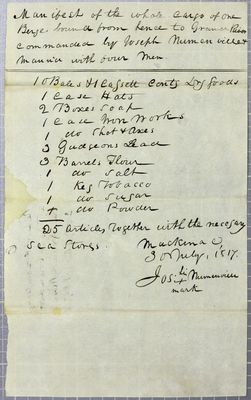 Manifest of the whole Cargo of one
Barge bound from hence to Grance River
Commanded by Joseph Numainville &
Man'd with four Men.
10 Bales & 1 Cassett Contg Dry Goods
1 Case Hats
2 Boxes Soap
1 Case Iron Works
1 do Shot & Axes
3 Gudgeons Lead
3 Barrels Flour
1 do Salt
1 Keg Tobacco
1 do Sugar
1 do Powder
25 articles together with the necessary
Sea Stores.
Mackina C,
30 July, 1817.
Jos Numainville
mark